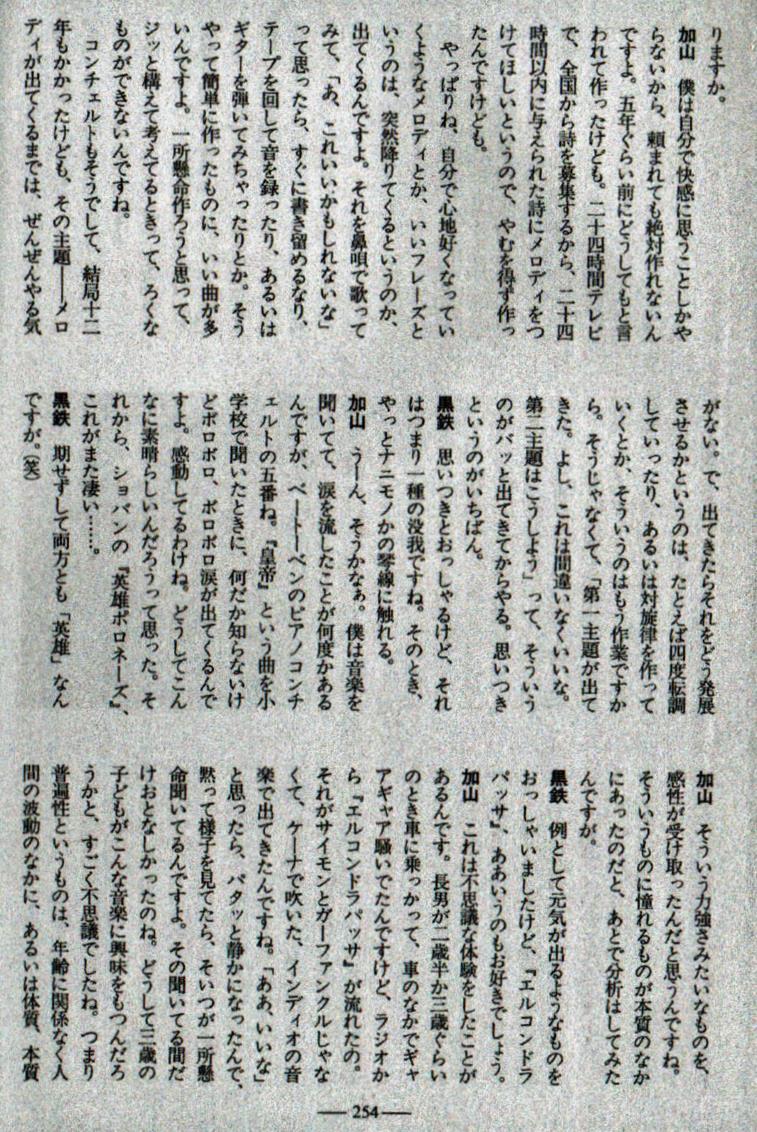 りますか。
加山　僕は自分で快感に思うことしかや
らないから、頼まれても絶対作れないん
ですよ。五年ぐらい前にどうしてもと言
われて作ったけども。二十四時間テレビ
で、全国から詩を募集するから、二十四
時間以内に与えられた詩にメロディをつ
けてほしいというので、やむを得ず作っ
たんですけども。
　やっぱりね、自分で心地好くなってい
くようなメロディとか、いいフレーズと
いうのは、突然降りてくるというのか、
出てくるんですよ。それを鼻唄で歌って
みて、「あ、これいいかもしれないな」
って思ったら、すぐに書き留めるなり、
テープを回して音を録ったり、あるいは
ギターを弾いてみちゃったりとか。そう
やって簡単に作ったものに、いい曲が多
いんですよ。一所懸命作ろうと思って、
ジッと構えて考えてるときって、ろくな
ものができないんですね。
　コンチェルトもそうでして、結局十二
年もかかったけども、その主題――メロ
ディが出てくるまでは、ぜんぜんやる気
がない。で、出てきたらそれをどう発展
させるかというのは、たとえば四度転調
していったり、あるいは対旋律を作って
いくとか、そういうのはもう作業ですか
ら。そうじゃなくて、「第一主題が出て
きた。よし、これは間違いなくいいな。
第二主題はこうしよう」って、そういう
のがバッと出てきてからやる。思いつき
というのがいちばん。
黒鉄　思いつきとおっしゃるけど、それ
はつまり一種の没我ですね。そのとき、
やっとナニモノかの琴線に触れる。
加山　うーん、そうかなぁ。僕は音楽を
聞いてて、涙を流したことが何度かある
んですが、ベートーベンのピアノコンチ
ェルトの五番ね。『皇帝』という曲を小
学校で聞いたときに、何だか知らないけ
どボロボロ、ボロボロ涙が出てくるんで
すよ。感動してるわけね。どうしてこん
なに素晴らしいんだろうって思った。そ
れから、ショパンの『英雄ポロネーズ』、
これがまた凄い……。
黒鉄　期せずして両方とも「英雄」なん
ですが。（笑）
加山　そういう力強さみたいなものを、
感性が受け取ったんだと思うんですね。
そういうものに憧れるものが本質のなか
にあったのだと、あとで分析はしてみた
んですが。
黒鉄　例として元気が出るようなものを
おっしゃいましたけど、『エルコンドラ
パッサ』、ああいうのもお好きでしょう。
加山　これは不思議な体験をしたことが
あるんです。長男が二歳半か三歳ぐらい
のとき車に乗っかって、車のなかでギャ
アギャア騒いでたんですけど、ラジオか
ら『エルコンドラパッサ』が流れたの。
それがサイモンとガーファンクルじゃな
くて、ケーナで吹いた、インディオの音
楽で出てきたんですね。「ああ、いいな」
と思ったら、パタッと静かになったんで、
黙って様子を見てたら、そいつが一所懸
命聞いてるんですよ。その聞いてる間だ
けおとなしかったのね。どうして三歳の
子どもがこんな音楽に興味をもつんだろ
うかと、すごく不思議でしたね。つまり
普遍性というものは、年齢に関係なく人
間の波動のなかに、あるいは体質、本質
―― 254 ――